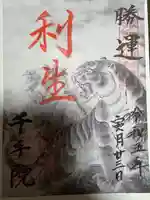 勝運
利生
令和五年
寅月廿三日
千手院